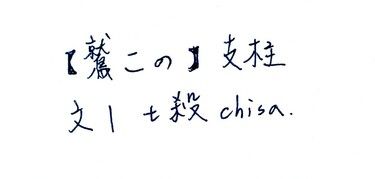 【鷲この】支柱
文1 t殺 chisa.